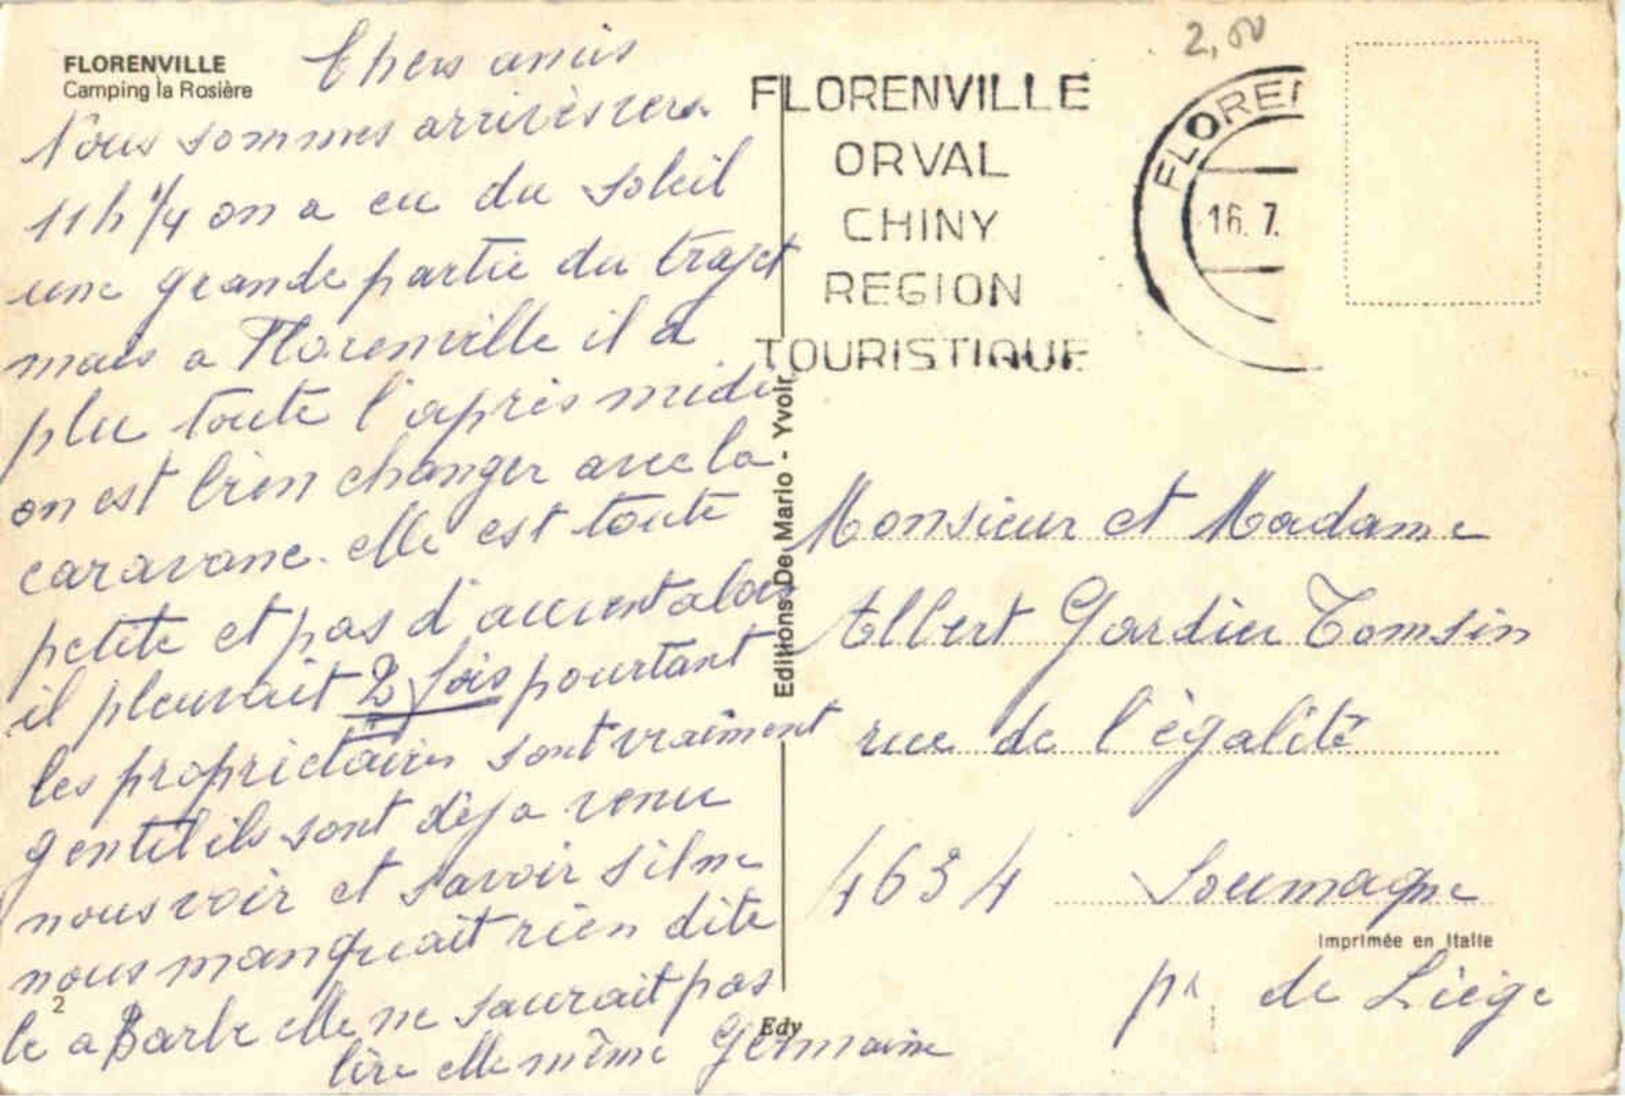 FLORENVILLE
Camping la Rosière
Chers amis
Nous sommes arrivés vers
11h 1/4 on a eu du soleil
une grande partie du trajet
mais a Florenville il a
plu toute l'après midi
on est bien changer avec la
caravane. elle est toute
petite et pas d'auvent alors
il pleuvait 2 fois pourtant
les proprietaires sont vraiment
gentil ils sont déja venu
nous voir et savoir s'il ne
nous manquait rien dite
le a Barbe elle ne saurait pas
lire elle même Germaine
2
Editions De Mario - Yvoir
Edy
2,00
FLORENVILLE
ORVAL
CHINY
REGION
TOURISTIQUE
FLOREN
16.7.
Monsieur et Madame
Albert Gardier Tomsin
rue de l'égalité
4634 Soumagne
Imprimée en Italie
pr. de Liège